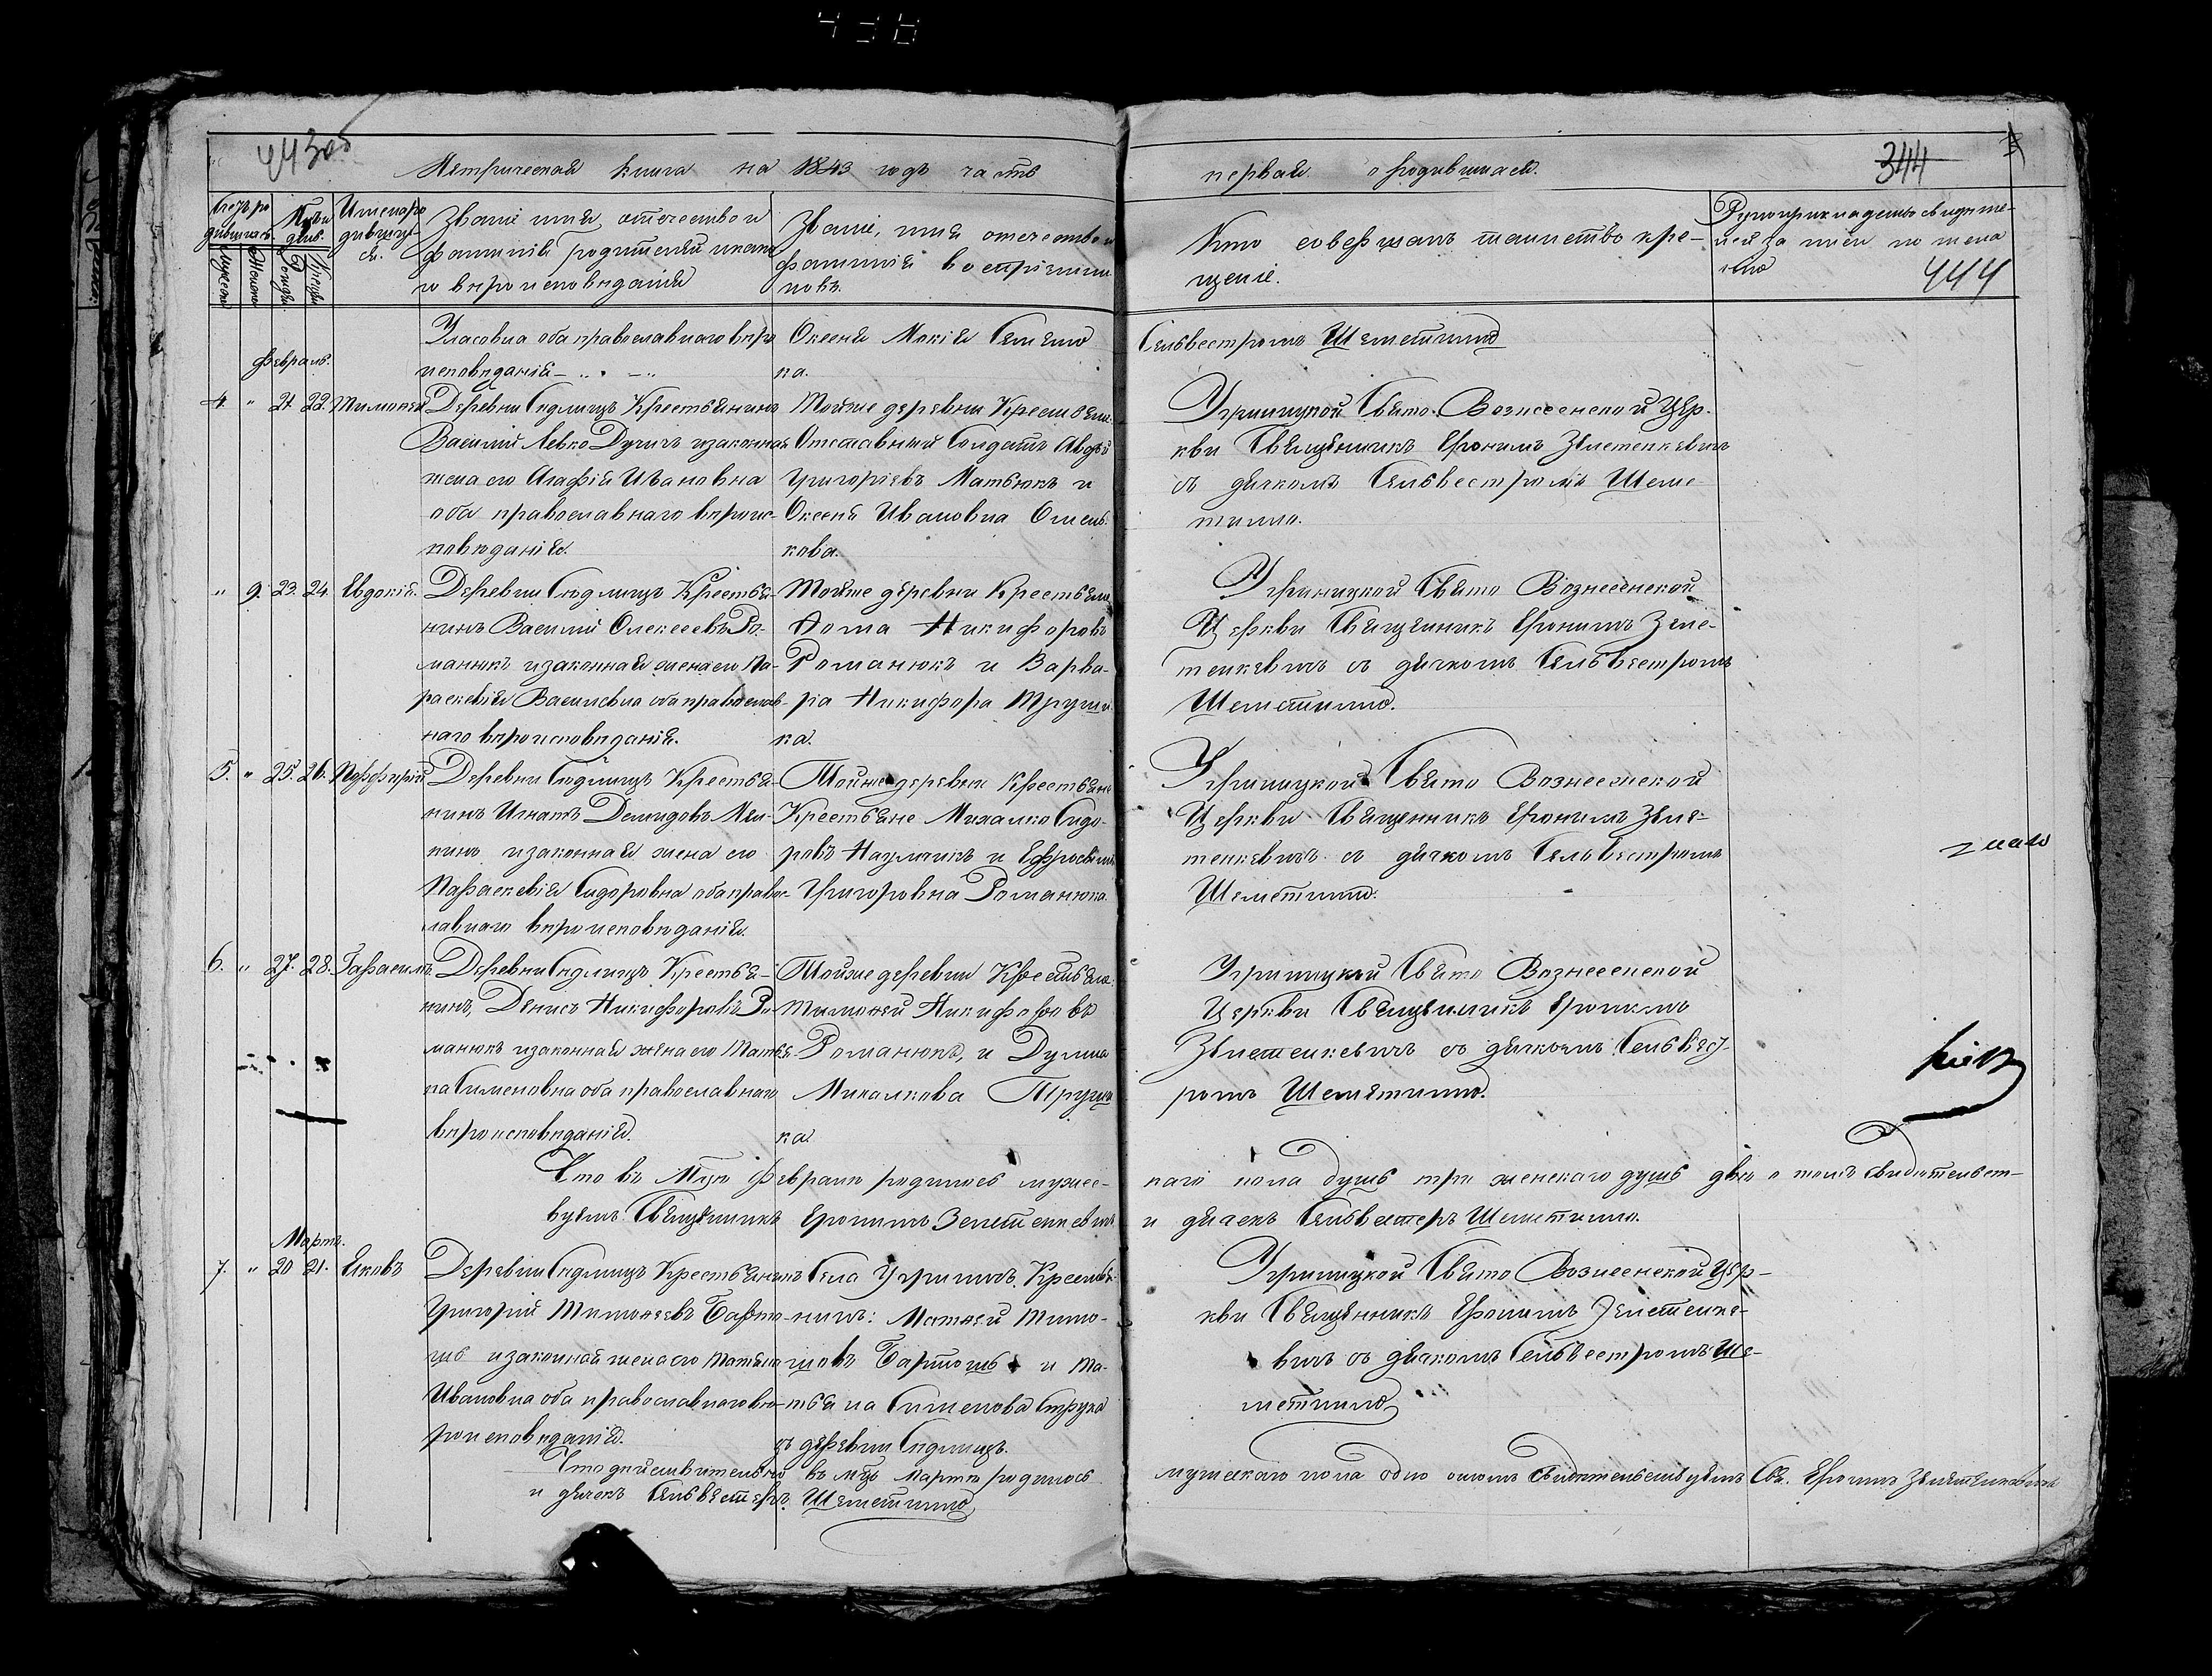 438
443 об
Метрическая книга на 1843 годъ часть
первая о родившихся.
344
Мѣсяцъ и день.
Имена родившихся.
Званіе имя, отечество и
фамилія родителей и какого
вѣроисповѣданія
Званіе, имя отечество и
фамилія воспріемни-
ковъ.
Кто совершалъ таинство кре-
щенія.
Рукоприкладство свидѣте-
лей за писи по жела-
нію
444
Февраль.
Уласовна оба православнаго вѣро
исповѣданія
Оксенія Мокія Семено
ка.
Сельвестромъ Шеметилло
4. " 21. 22. Тимофей
Деревни Сѣдлищъ Крестьянинъ
Василій Левко Дучичъ и законная
жена его Агафія Ивановна
оба православнаго вѣроис-
повѣданія.
Тойже деревни Крестьяне
Отставный Солдатъ Авдѣй
Григоріевъ Матвіюкъ и
Оксенія Ивановна Омель-
кова.
Угриницкой Свято Вознесенской Цер-
кви Священникъ Еронимъ Зелетенкевичъ
съ дячкомъ Сельвестромъ Шеме-
тилло.
" 9. 23. 24. Евдокія.
Деревни Сѣдлищъ Крестья-
нинъ Василій Олексеевъ Ро-
манюкъ и законная жена его Па-
раскевія Василевна оба православ-
наго вѣроисповѣданія.
Тойже деревни Крестьяне
Фома Никифоровъ
Романюкъ и Варва-
ра Никифора Труши-
ка.
Угриницкой Свято Вознесенской
Церкви Священникъ Еронимъ Зеле-
тенкевичъ съ дячкомъ Сельвестромъ
Шеметилло.
5. " 25. 26. Порфирій
Деревни Сѣдлищъ Крестья-
нинъ Игнатъ Демидовъ Мел-
никъ и законная жена его
Параскевія Сидоровна оба правос-
лавнаго вѣроисповѣданія.
Тойже деревни Крестьяне
Крестьяне Михалко Сидо-
ровъ Наумчикъ и Ефросинія
Григоровна Романюка.
Угриницкой Свято Вознесенской
Церкви Священникъ Еронимъ Зеле-
тенкевичъ съ дячкомъ Сельвестромъ
Шеметилло.
6. " 27. 28. Гавріилъ
Деревни Сѣдлищъ Крестья-
нинъ, Денисъ Никифоровъ Ро-
манюкъ и законная жена его Матвѣ-
на Сименовна оба православнаго
вѣроисповѣданія.
Тойже деревни Крестьяне
Тимофей Никифоровъ
Романюкъ, и Думна
Михалкова Труши
ка.
Угриницкой Свято Вознесенской
Церкви Священникъ Еронимъ
Зелетенкевичъ съ дячкомъ Сельвест-
ромъ Шеметилло.
Что въ Мцѣ Февралѣ родилось мужес-
каго пола душъ три женскаго душъ двѣ о томъ свидѣтельст-
вуемъ. Священникъ Еронимъ Зелетенкевичъ
и дячекъ Сельвестеръ Шеметилло.
Мартъ.
7. " 20 21. Яковъ
Деревни Сѣдлищъ Крестьянинъ
Григорій Тимофеевъ Барто-
шъ и законная жена его Матвіна
Ивановна оба православнаго вѣ-
роисповѣданія.
Села Угриничъ. Крестья-
нинъ: Матвей Тимо-
шовъ Бартошъ и Ма-
твѣна Сименова Струка
зъ деревни Сѣдлищъ.
Угриницкой Свято Вознесенской Цер-
кви Священникъ Еронимъ Зелетенке-
вичъ съ дячкомъ Сельвестромъ Ше-
метилло
Что дѣйствительно въ мцѣ Мартѣ родилось
мужескаго пола одно о томъ свидѣтельствуемъ Свя. Еронимъ Зелетенкевичъ
и дячекъ Сельвестеръ Шеметилло